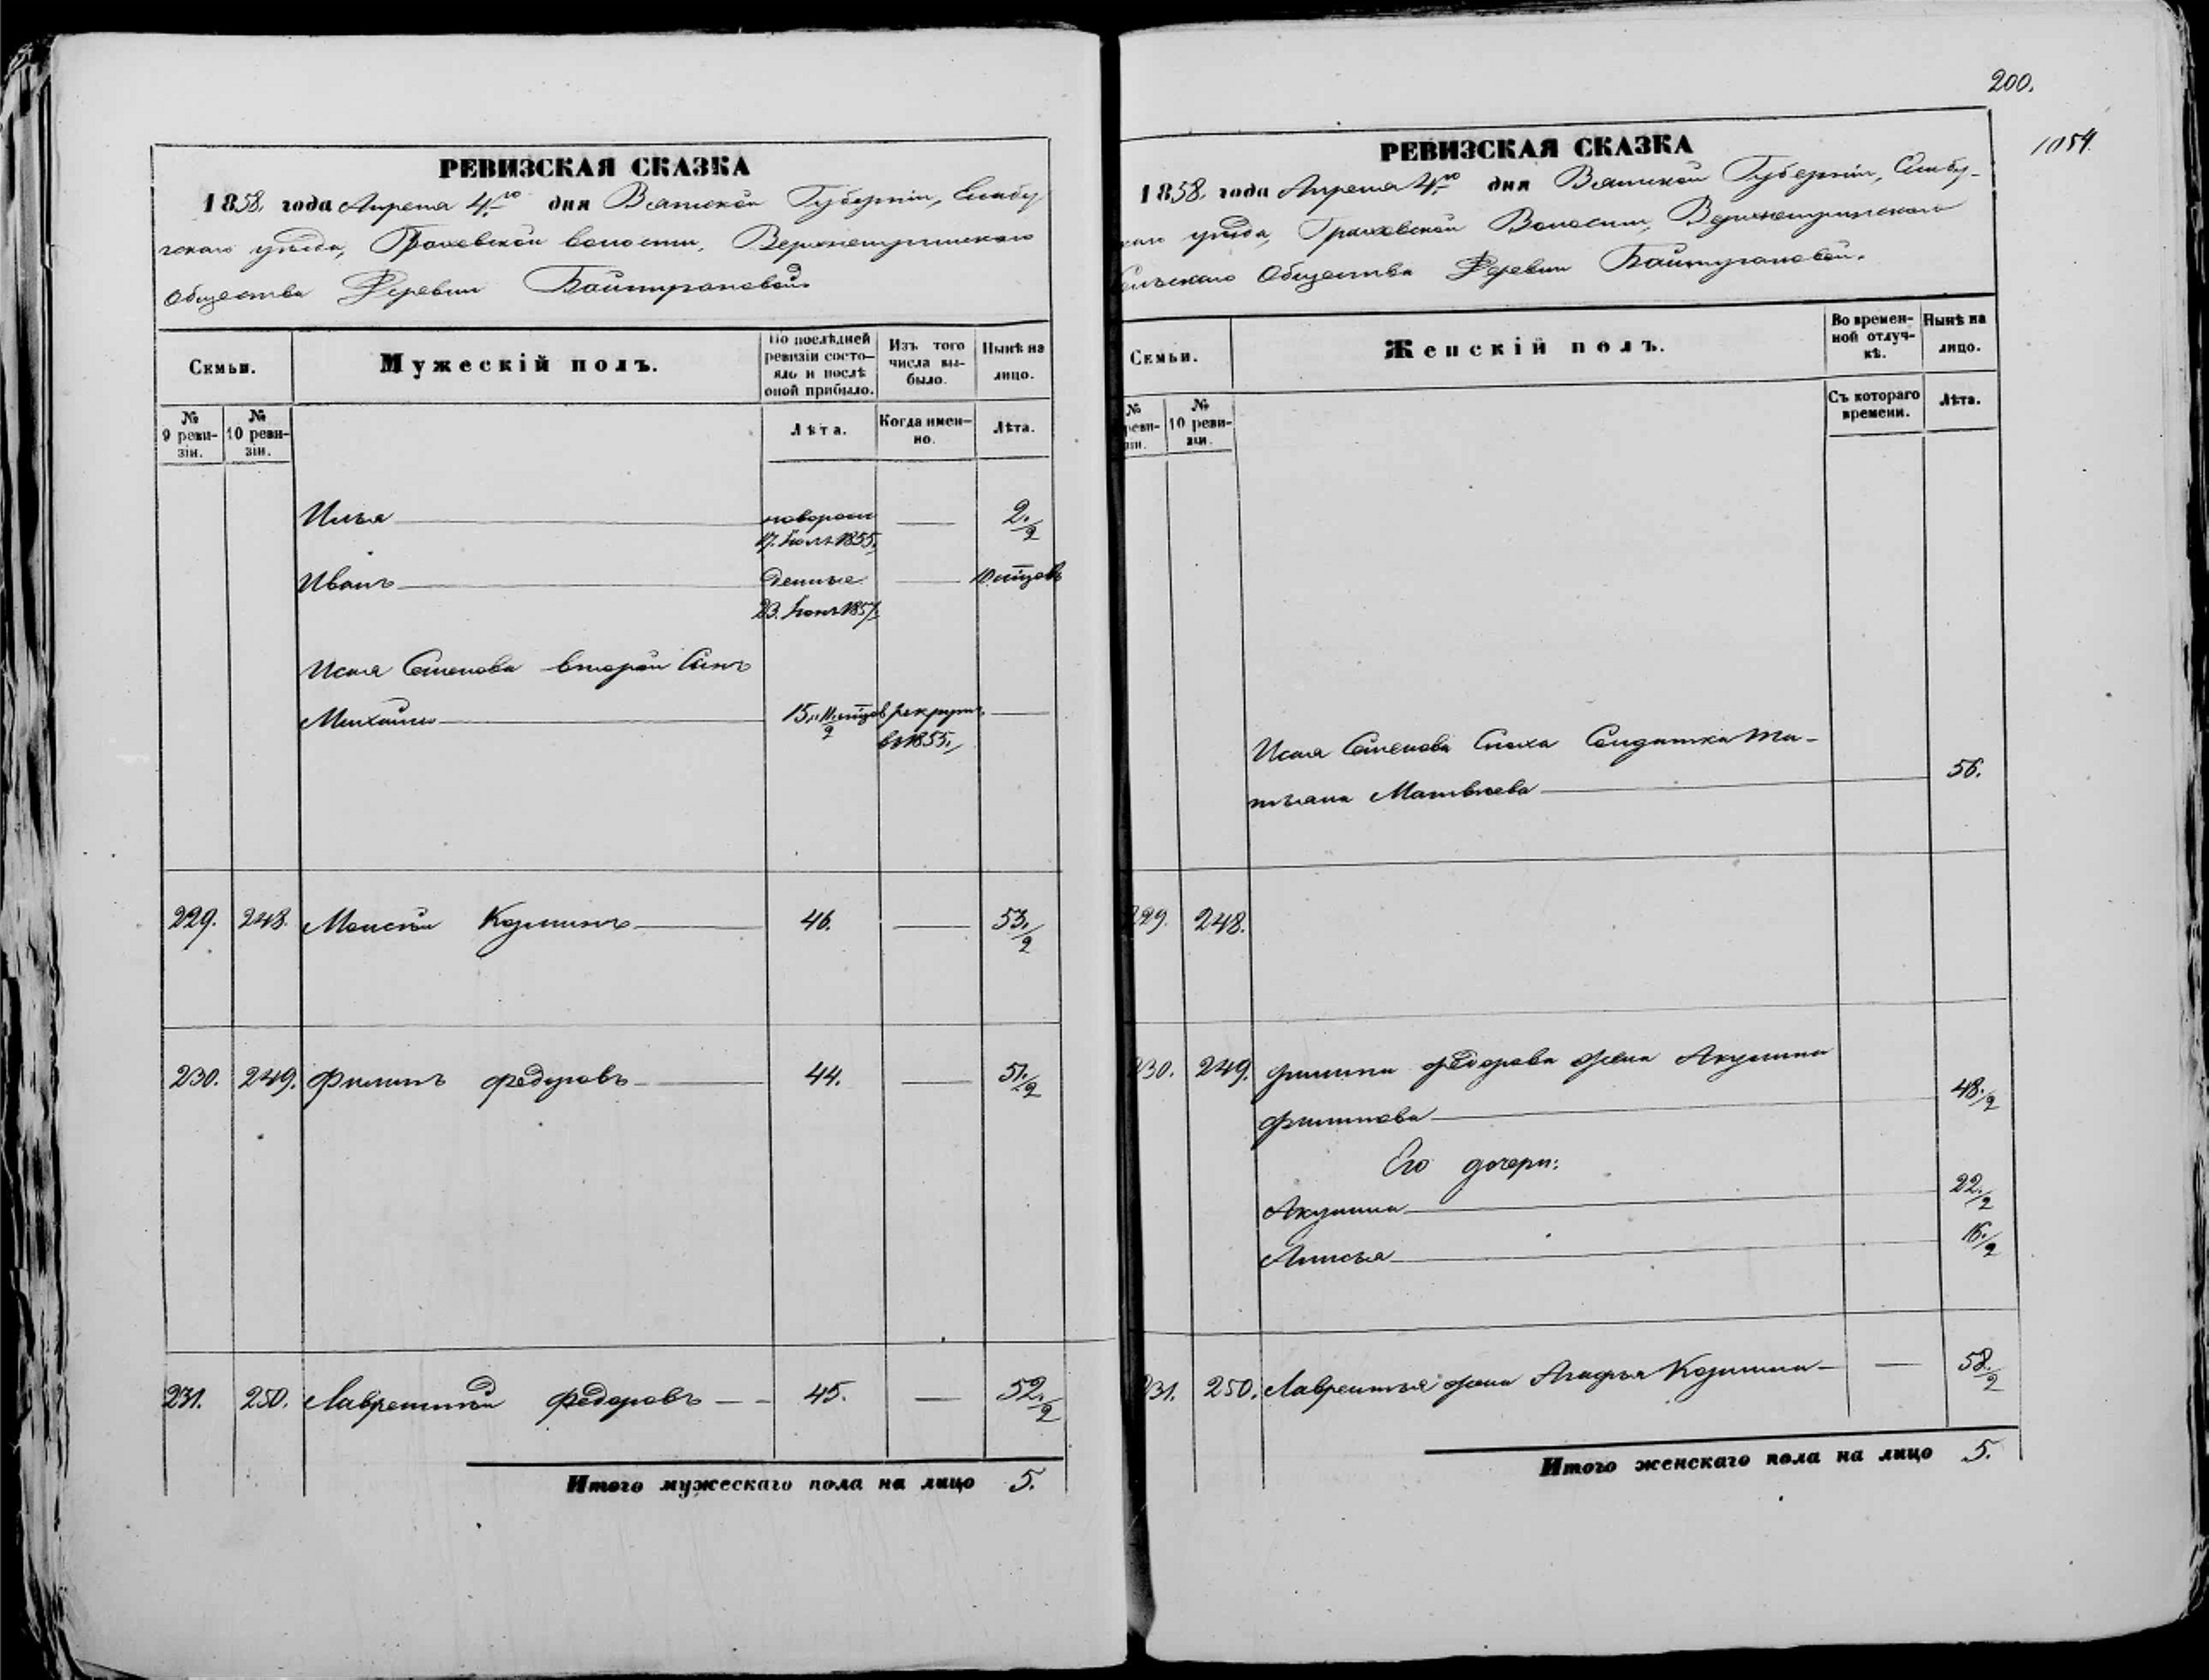 РЕВИЗСКАЯ СКАЗКА
1858. года Апреля 4го дня Вятской Губерніи, Елабу
гскаго уѣзда, Граховской волости,
Общества Деревни Байтугановой.
Семьи.
Мужескій полъ.
По послѣдней ревизіи состо-
яло и послѣ оной прибыло.
Изъ того числа вы-
было.
Нынѣ на лицо.
№ 9 реви-
зіи.
№ 10 реви-
зіи.
Лѣта.
Когда имен-
но.
Лѣта.
Илья новорож 2./2
17. 1855.
Иванъ денные
23. 1857.
Исая Семенова второй Сынъ
Михайло 15. рекрут.
въ 1855.
229. 248. Моисѣй Козминъ 46. 53./2
230. 249. Филипъ Федоровъ 44. 51./2
231. 250. Лаврентій Федоровъ 45. 52./2
Итого мужескаго пола на лицо 5.
200.
1054.
РЕВИЗСКАЯ СКАЗКА
1858. года Апреля 4го дня Вятской Губерніи, Елабу-
скаго уѣзда, Граховской Волости,
Сельскаго Общества Деревни Байтугановой.
Семьи.
Женскій полъ.
Во времен-
ной отлуч-
кѣ.
Нынѣ на лицо.
№ реви-
зіи.
№ 10 реви-
зіи.
Съ котораго времени.
Лѣта.
Исая Семенова Сноха Солдатка Та-
тьяна Матвѣева 56.
229. 248.
230. 249. Филипа Федорова жена Акулина
Филипова 48./2
Его дочери:
Акулина 22./2
Анисья 16./2
231. 250. Лаврентья жена Агафья Козмина 58./2
Итого женскаго пола на лицо 5.